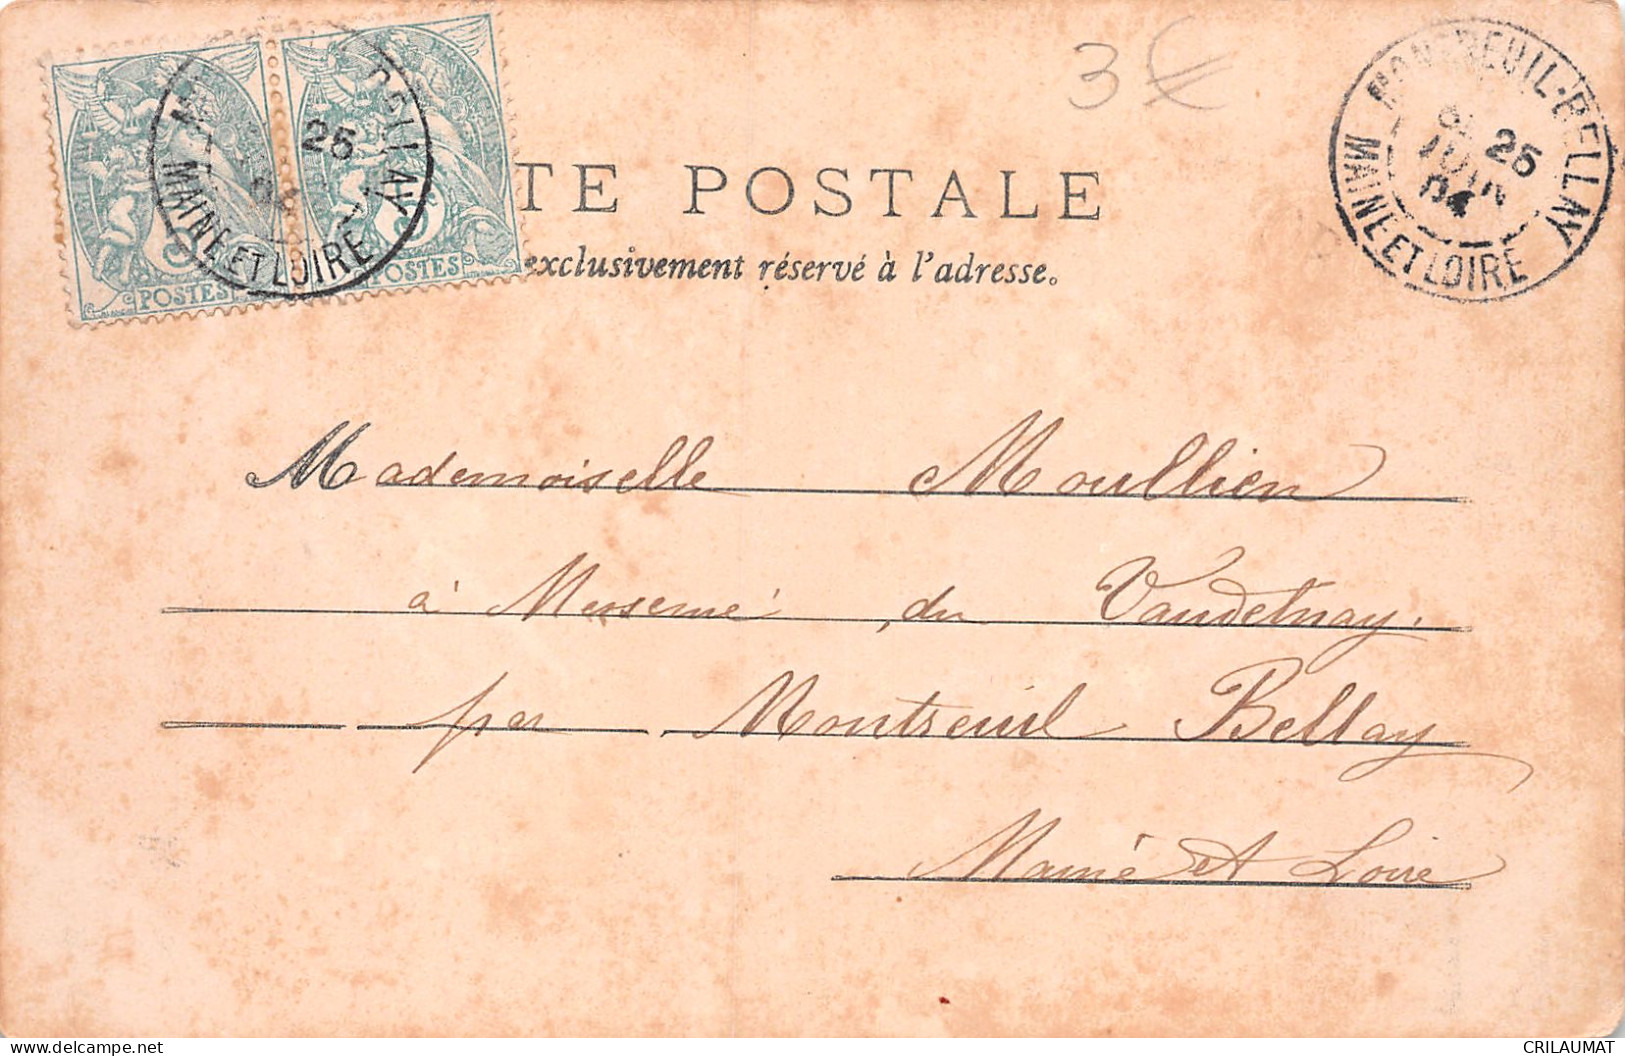 3 €
TE POSTALE
exclusivement réservé à l'adresse.
POSTES
5
POSTES
25
MAINE ET LOIRE
MONTREUIL-BELLAY
25
JUIN
04
MAINE ET LOIRE
Mademoiselle Moullien
à Messemé du Vaudelnay.
par Montreuil Bellay
Maine et Loire
CRILAUMAT